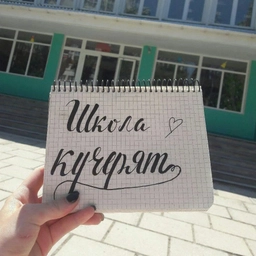 Школа
кучфрят